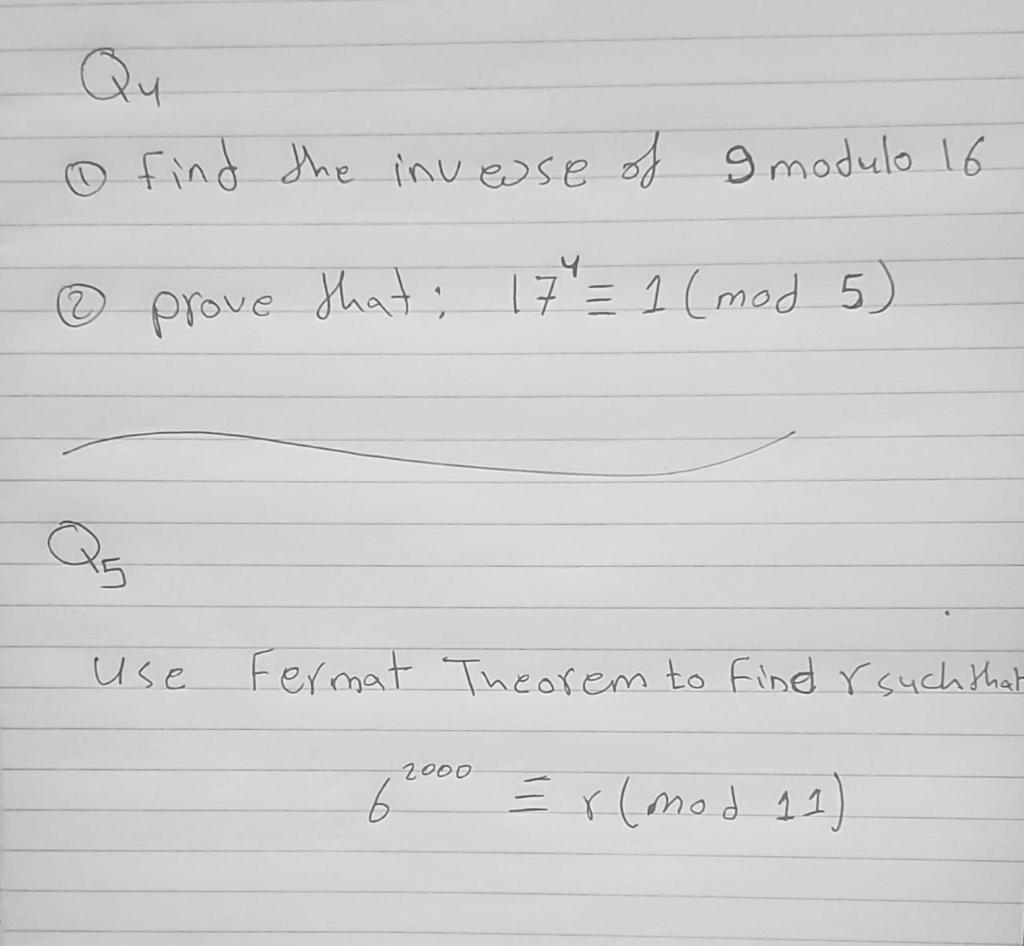 Q4
① find the inverse of 9 modulo 16
② prove that: 17⁴ ≡ 1 (mod 5)
Q5
Use Fermat Theorem to find r such that
6²⁰⁰⁰ ≡ r (mod 11)